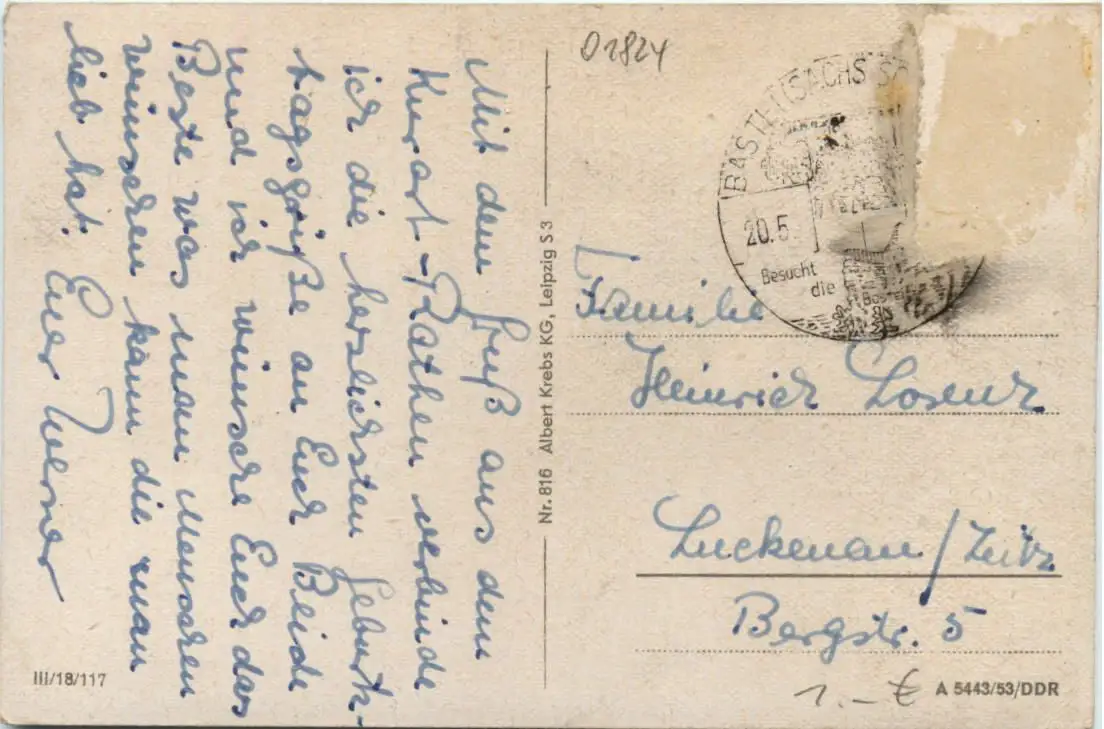 Mit dem Gruß aus dem
Kurort-Rathen verbinde
ich die herzlichsten Geburts-
tagsgrüße an Euch Beide
und ich wünsche Euch das
Beste was man Menschen
wünschen kann die man
lieb hat. Euer Werner
III/18/117
Nr. 816 Albert Krebs KG, Leipzig S 3
01824
BASTEI (SÄCHS S
20.5
Besucht
die
Bastei
Familie
Heinrich Lorenz
Luckenau/Zeitz
Bergstr. 5
1.-€
A 5443/53/DDR